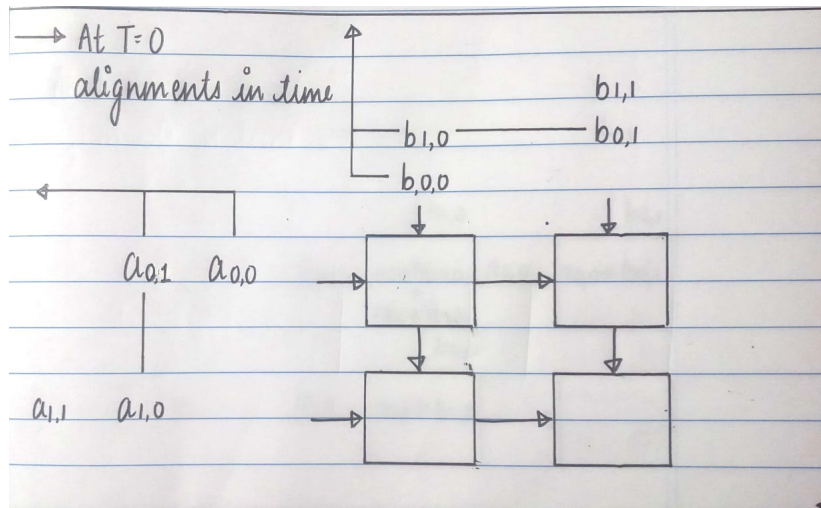 → At T=0
alignments in time
b1,1
b1,0 b0,1
b,0,0
a0,1 a0,0
a1,1 a1,0